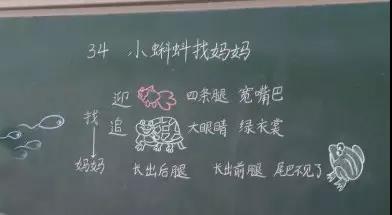 34 小蝌蚪找妈妈
迎 四条腿 宽嘴巴
找 追 大眼睛 绿衣裳
妈妈 长出后腿 长出前腿 尾巴不见了